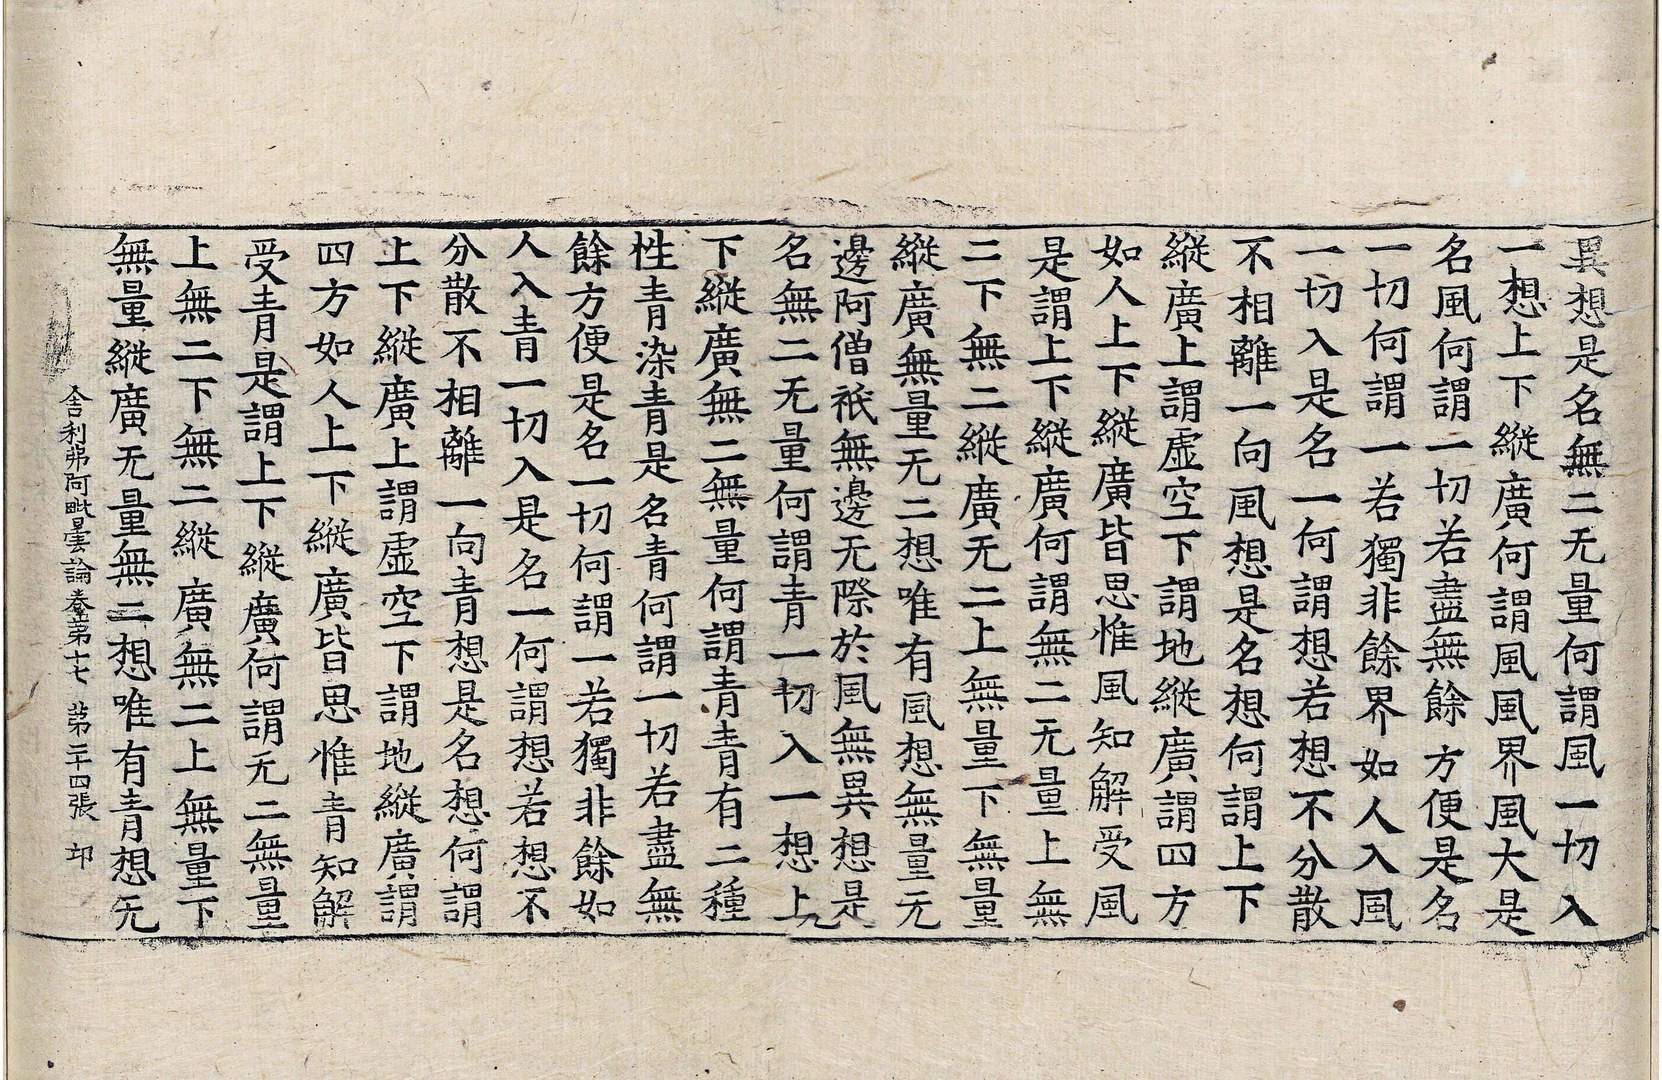 異想是名無二无量何謂風一切入
一想上下縱廣何謂風風界風大是
名風何謂一切若盡無餘方便是名
一切何謂一若獨非餘界如人入風
一切入是名一何謂想若想不分散
不相離一向風想是名想何謂上下
縱廣上謂虛空下謂地縱廣謂四方
如人上下縱廣皆思惟風知解受風
是謂上下縱廣何謂無二无量上無
二下無二縱廣无二上無量下無量
縱廣無量无二想唯有風想無量无
邊阿僧祇無邊无際於風無異想是
名無二无量何謂青一切入一想上
下縱廣無二無量何謂青青有二種
性青染青是名青何謂一切若盡無
餘方便是名一切何謂一若獨非餘如
人入青一切入是名一何謂想若想不
分散不相離一向青想是名想何謂
上下縱廣上謂虛空下謂地縱廣謂
四方如人上下縱廣皆思惟青知解
受青是謂上下縱廣何謂无二無量
上無二下無二縱廣無二上無量下
無量縱廣无量無二想唯有青想无
舍利弗阿毗曇論卷第十七 第二十四張 卭